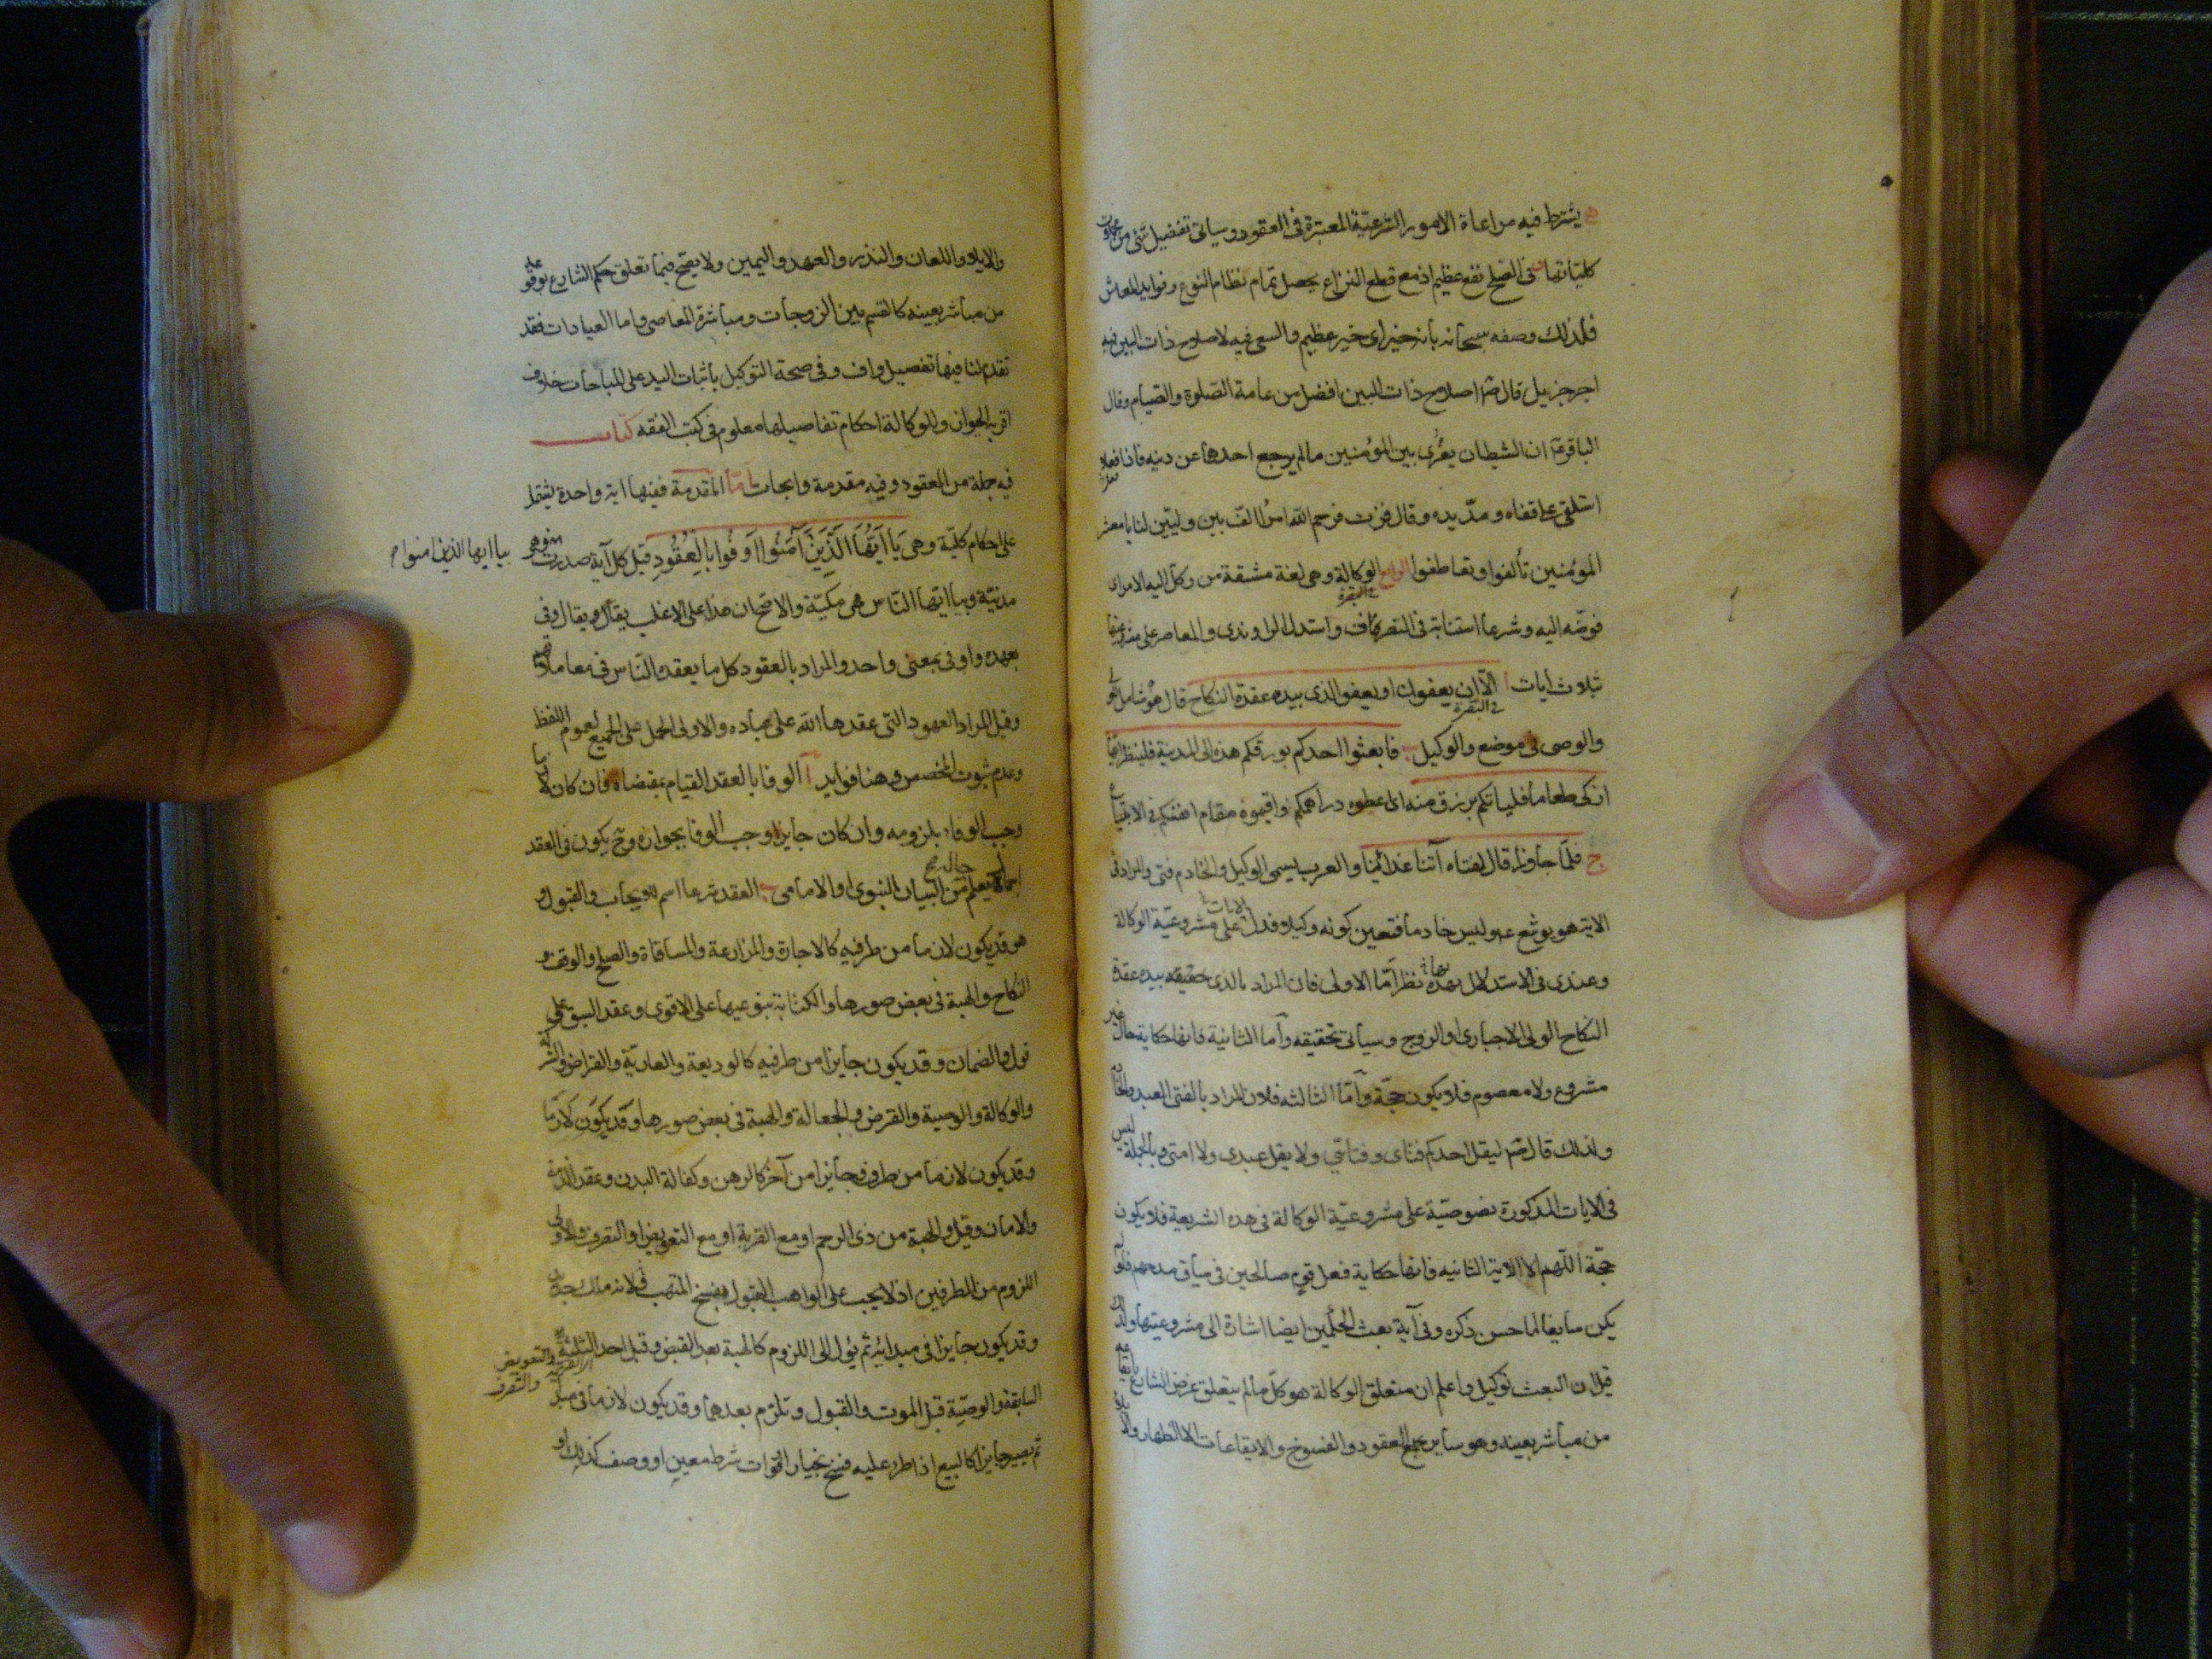 ه يشترط فيه مراعاة الامور الشرعيّة المعتبرة فى العقود وسياتى تفصيل شئ من
كليّاتها و فى الصلح نفع عظيم اذ مع قطع النزاع يحصل تمام نظام النوع وفوايد المعاش
فلذلك وصفه سبحانه بانه خير اى خير عظيم والسعى فيه لاصلاح ذات البين فيه
اجر جزيل قال صم اصلاح ذات البين افضل من عامة الصّلوة والصّيام وقال
الباقر ع ان الشيطان يغرى بين المؤمنين ما لم يرجع احدهما عن دينه فاذا فعلا
استلقى على قفاه و مدّ يديه وقال فزت فرحم الله امرا الف بين وليّين لنا يا معشر
المؤمنين تألفوا وتعاطفوا الرابع الوكالة وهى لغة مشتقة من وكل اليه الامر اى
فوضه اليه وشرعا استنابة فى التصرف واستدل الراوندى والمعاصر على مشروعيتها
بثلاث ايات ا الا ان يعفون او يعفو الذى بيده عقدة النكاح قال هو شامل
فى البقرة
والوصى فى موضع والوكيل ب فابعثوا احدكم بورقكم هذه الى المدينة فلينظر ايها
ازكى طعاما فلياتكم برزق منه اى اعطوه دراهمكم واقيموه مقام انفسكم فى الابتياع
ج فلمّا جاوزا قال لفتاه آتنا غدائنا والعرب يسمى الوكيل والخادم فتى والمراد فى
الاية هو يوشع ع وليس خادما فتعين كونه وكيلا فدلت الايات على مشروعيّة الوكالة
وعندى فى الاستدلال بهذه نظر امّا الاولى فان المراد بالذى حقيقة بيده عقدة
النكاح الولى الاجبارى او الزوج وسياتى تحقيقه وأما الثانية فانها حكاية حال غير
مشروع ولا معصوم فلا يكون حجّة وأمّا الثالثه فلان المراد بالفتى العبد
ولذلك قال صم ليقل احدكم فتاى وفتاتى ولا يقل عبدى ولا امتى وبالجملة ليس
فى الايات المذكورة نصوصيّة على مشروعيّة الوكالة فى هذه الشريعة فلا يكون
حجّة اللهم الا الاية الثانيه فانها حكاية فعل قوم صالحين فى سياق مدحهم فلو لم
يكن سايغا لما حسن ذكره وفى آية بعث الحكمين ايضا اشارة الى مشروعيتها ولذلك
قيل ان البعث توكيل واعلم ان متعلق الوكالة هو كلّ ما لم يتعلق غرض الشارع بايقاعه
من مباشر بعينه وهو ساير العقود والفسوخ والايقاعات الا الظهار والا
والايلاء واللعان والنذر والعهد واليمين ولا يصحّ فيما تعلق حكم الشارع بوقوعه
من مباشر بعينه كالقسم بين الزوجات ومباشرة المعاصى واما العبادات فقد
تقدم لنا فيها تفصيل واف وفى صحة التوكيل باثبات اليد على المباحات خلاف
اقربه الجواز وللوكالة احكام تفاصيلها معلوم فى كتب الفقه كتاب
فيه جملة من العقود وفيه مقدمة وابحاث امّا المقدمة ففيها اية واحدة يشتمل
على احكام كليّة وهى يَا أَيُّهَا الَّذِينَ آمَنُوا أَوْفُوا بِالْعُقُودِ قيل كل آية صدرت
بيا ايها الذين امنوا
مدنيّة وبيا ايّها النّاس هى مكيّة والاصح ان هذا على الاغلب يقال ويقال وفى
بعهده واوفى بمعنى واحد والمراد بالعقود كل ما يعقده النّاس فى معاملاتهم
وقيل المراد العهود التى عقدها الله على عباده والاولى الحمل على الجميع لعموم اللفظ
وعدم ثبوت المخصص وهنا فوايد ا الوفا بالعقد القيام بمقتضاه فان كان لازما
وجب الوفاء بلزومه وان كان جايزا وجب الوفا بجوازه وح يكون فى العقد
اجمال يعلم من البيان النبوى او الامامى ب العقد شرعا اسم للايجاب والقبول و
هو قد يكون لازما من طرفيه كالاجارة والمزارعة والمساقاة والصلح والوقف و
النكاح والهبة فى بعض صورها والكتابة بنوعيها على الاقوى وعقد السبق على
قول والضمان وقد يكون جايزا من طرفيه كالوديعة والعاريّة والقراض والشركة
والوكالة والوصية والقرض والجعالة والهبة فى بعض صورها
وقد يكون لازما من طرف وجايزا من آخر كالرهن وكفالة البدن وعقد الذمة
والامان وقيل والهبة من ذى الرحم او مع القربة او مع التعويض او التصرف والاولى
اللزوم من الطرفين اذ لا يجب على الواهب القبول لفسخ المتهب لانه ملك جديد
وقد يكون جايزا فى مبدائه ثم يئول الى اللزوم كالهبة بعد القبض وقبل احد الثلثة
والتعويض
والتصرف
السابقة والوصيّة قبل الموت والقبول وتلزم بعدهما وقد يكون لازما فى مبدأ
ثم يصير جايزا كالبيع اذا طرء عليه فسخ بخيار او فوات شرط معين او وصف كذلك او